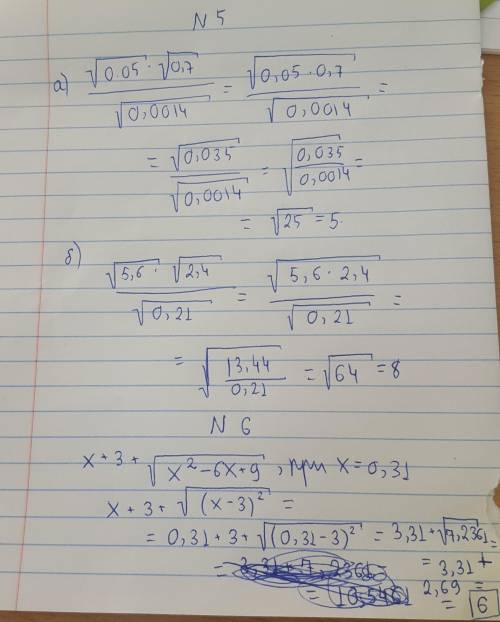 N 5
а) √0.05 · √0,7 / √0,0014 = √0,05 · 0,7 / √0,0014 =
= √0,035 / √0,0014 = √0,035/0,0014 =
= √25 = 5.
б) √5,6 · √2,4 / √0,21 = √5,6 · 2,4 / √0,21 =
= √13,44/0,21 = √64 = 8
N 6
x + 3 + √x² - 6x + 9, при x = 0,31
x + 3 + √(x - 3)² =
= 0,31 + 3 + √(0,31 - 3)² = 3,31 + √7,2361 =
= 3,31 + 2,69 =
= 6